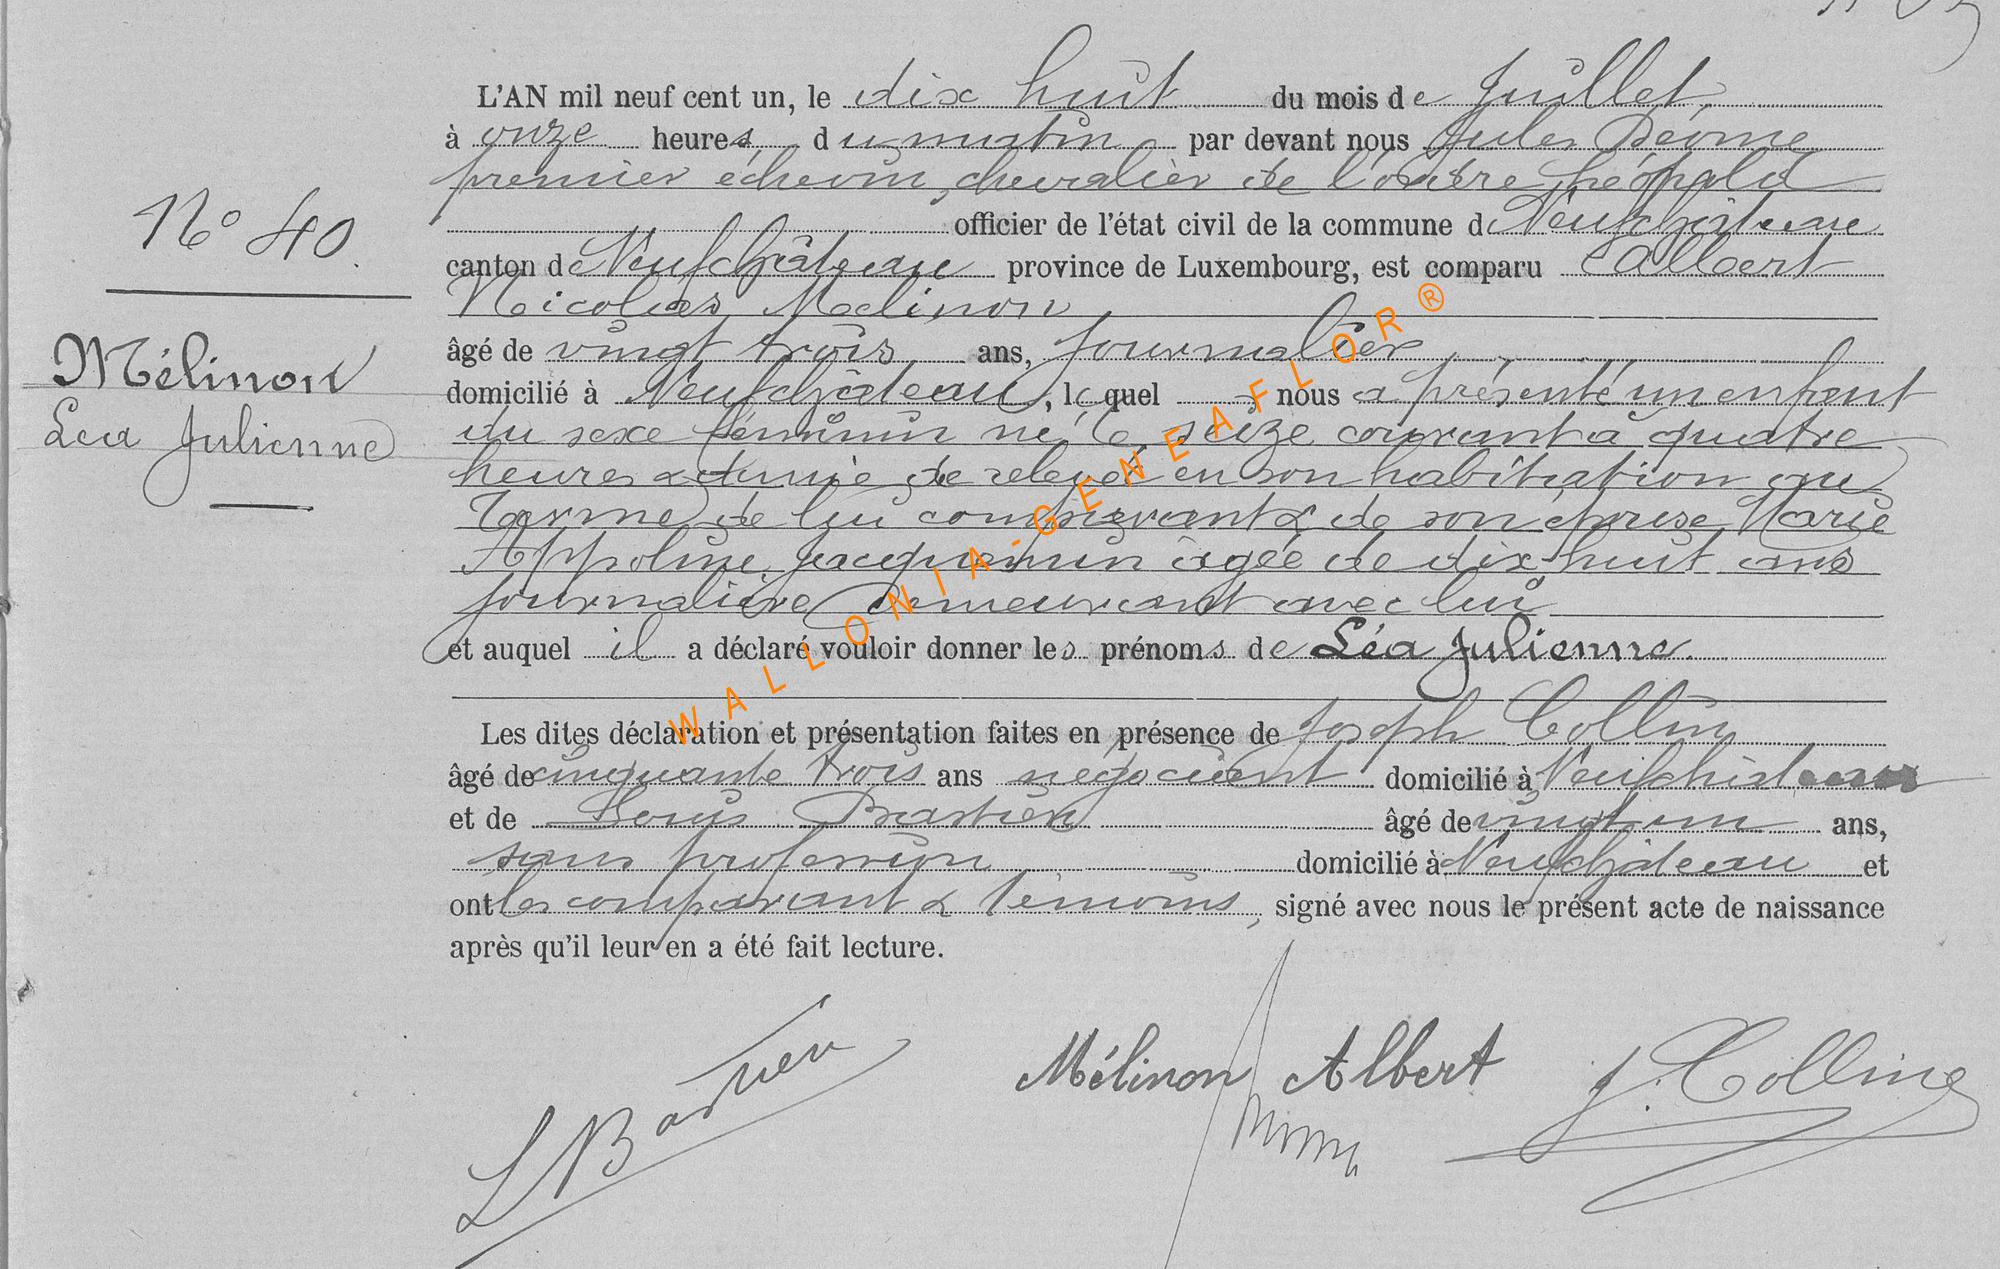 N° 40.
Mélinon
Léa Julienne
L'AN mil neuf cent un, le dix huit du mois de Juillet,
à onze heures, du matin par devant nous Jules
premier échevin, chevalier de l'ordre Léopold
officier de l'état civil de la commune de Neufchâteau
canton de Neufchâteau province de Luxembourg, est comparu Albert
Nicolas Mélinon
âgé de vingt trois ans, journalier
domicilié à Neufchâteau, lequel nous a présenté un enfant
du sexe féminin né le seize courant à quatre
heures & demie de relevée en son habitation au
Terme de lui comparant & de son épouse Marie
Appoline Jacquemin âgée de dix-huit ans
journalière demeurant avec lui
et auquel il a déclaré vouloir donner les prénoms de Léa Julienne.
Les dites déclaration et présentation faites en présence de Joseph Collin
âgé de cinquante trois ans négociant domicilié à Neufchâteau
et de Louis Bastien âgé de vingt un ans,
sans profession domicilié à Neufchâteau et
ont les comparant & témoins, signé avec nous le présent acte de naissance
après qu'il leur en a été fait lecture.
L Bastien
Mélinon Albert
J. Colling
WALLONIA-GENEAFLOR®